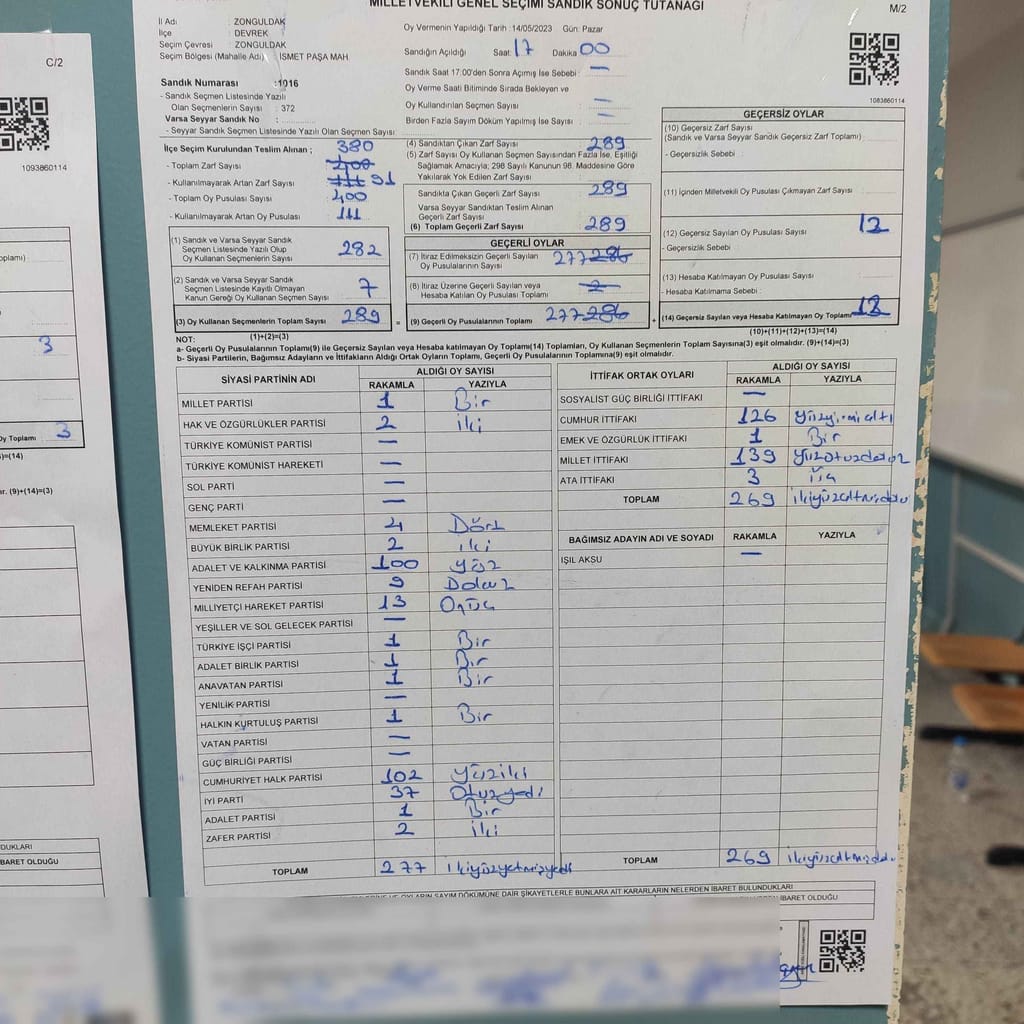 MİLLETVEKİLİ GENEL SEÇİMİ SANDIK SONUÇ TUTANAĞI
M/2
İl Adı : ZONGULDAK
İlçe : DEVREK
Seçim Çevresi : ZONGULDAK
Seçim Bölgesi (Mahalle Adı) : İSMET PAŞA MAH.
Oy Vermenin Yapıldığı Tarih :14/05/2023 Gün: Pazar
Sandığın Açıldığı Saat: 17 Dakika 00
Sandık Saat 17:00'den Sonra Açımış İse Sebebi : —
Oy Verme Saati Bitiminde Sırada Bekleyen ve
Oy Kullandırılan Seçmen Sayısı : —
Birden Fazla Sayım Döküm Yapılmış İse Sayısı : —
1083860114
Sandık Numarası :1016
- Sandık Seçmen Listesinde Yazılı
Olan Seçmenlerin Sayısı : 372
Varsa Seyyar Sandık No :
- Seyyar Sandık Seçmen Listesinde Yazılı Olan Seçmen Sayısı :
İlçe Seçim Kurulundan Teslim Alınan ; 380
- Toplam Zarf Sayısı 400
- Kullanılmayarak Artan Zarf Sayısı 111 91
- Toplam Oy Pusulası Sayısı 400
- Kullanılmayarak Artan Oy Pusulası 111
(1) Sandık ve Varsa Seyyar Sandık
Seçmen Listesinde Yazılı Olup
Oy Kullanan Seçmenlerin Sayısı 282
(2) Sandık ve Varsa Seyyar Sandık
Seçmen Listesinde Kayıtlı Olmayan
Kanun Gereği Oy Kullanan Seçmen Sayısı 7
(3) Oy Kullanan Seçmenlerin Toplam Sayısı 289 =
(1)+(2)=(3)
(4) Sandıktan Çıkan Zarf Sayısı 289
(5) Zarf Sayısı Oy Kullanan Seçmen Sayısından Fazla İse, Eşitliği
Sağlamak Amacıyla; 298 Sayılı Kanunun 98. Maddesine Göre
Yakılarak Yok Edilen Zarf Sayısı
Sandıkta Çıkan Geçerli Zarf Sayısı 289
Varsa Seyyar Sandıktan Teslim Alınan
Geçerli Zarf Sayısı
(6) Toplam Geçerli Zarf Sayısı 289
GEÇERLİ OYLAR
(7) İtiraz Edilmeksizin Geçerli Sayılan
Oy Pusulalarının Sayısı 277 286
(8) İtiraz Üzerine Geçerli Sayılan veya
Hesaba Katılan Oy Pusulası Toplamı
(9) Geçerli Oy Pusulalarının Toplamı 277 286 +
GEÇERSİZ OYLAR
(10) Geçersiz Zarf Sayısı
(Sandık ve Varsa Seyyar Sandık Geçersiz Zarf Toplamı)
- Geçersizlik Sebebi :
(11) İçinden Milletvekili Oy Pusulası Çıkmayan Zarf Sayısı
(12) Geçersiz Sayılan Oy Pusulası Sayısı 12
- Geçersizlik Sebebi
(13) Hesaba Katılmayan Oy Pusulası Sayısı
- Hesaba Katılmama Sebebi :
(14) Geçersiz Sayılan veya Hesaba Katılmayan Oy Pusulası Toplamı 12
(10)+(11)+(12)+(13)=(14)
NOT:
a- Geçerli Oy Pusulalarının Toplamı(9) ile Geçersiz Sayılan veya Hesaba Katılmayan Oy Pusulası Toplamı(14) Toplamları, Oy Kullanan Seçmenlerin Toplam Sayısına(3) eşit olmalıdır. (9)+(14)=(3)
b- Siyasi Partilerin, Bağımsız Adayların ve İttifakların Aldığı Ortak Oyların Toplamı, Geçerli Oy Pusulalarının Toplamına(9) eşit olmalıdır.
SİYASİ PARTİNİN ADI ALDIĞI OY SAYISI
RAKAMLA YAZIYLA
MİLLET PARTİSİ 1 Bir
HAK VE ÖZGÜRLÜKLER PARTİSİ 2 iki
TÜRKİYE KOMÜNİST PARTİSİ —
TÜRKİYE KOMÜNİST HAREKETİ —
SOL PARTİ —
GENÇ PARTİ —
MEMLEKET PARTİSİ 4 Dört
BÜYÜK BİRLİK PARTİSİ 2 iki
ADALET VE KALKINMA PARTİSİ 100 Yüz
YENİDEN REFAH PARTİSİ 9 Dokuz
MİLLİYETÇİ HAREKET PARTİSİ 13 Onüç
YEŞİLLER VE SOL GELECEK PARTİSİ —
TÜRKİYE İŞÇİ PARTİSİ 1 Bir
ADALET BİRLİK PARTİSİ 1 Bir
ANAVATAN PARTİSİ 1 Bir
YENİLİK PARTİSİ —
HALKIN KURTULUŞ PARTİSİ 1 Bir
VATAN PARTİSİ —
GÜÇ BİRLİĞİ PARTİSİ —
CUMHURİYET HALK PARTİSİ 102 Yüziki
İYİ PARTİ 37 Otuzyedi
ADALET PARTİSİ 1 Bir
ZAFER PARTİSİ 2 iki
TOPLAM 277 ikiyüzyetmişyedi
İTTİFAK ORTAK OYLARI ALDIĞI OY SAYISI
RAKAMLA YAZIYLA
SOSYALİST GÜÇ BİRLİĞİ İTTİFAKI —
CUMHUR İTTİFAKI 126 Yüzyirmialtı
EMEK VE ÖZGÜRLÜK İTTİFAKI 1 Bir
MİLLET İTTİFAKI 139 Yüzotuzdokuz
ATA İTTİFAKI 3 Üç
TOPLAM 269 ikiyüzaltmışdoku
BAĞIMSIZ ADAYIN ADI VE SOYADI RAKAMLA YAZIYLA
IŞIL AKSU —
TOPLAM 269 ikiyüzaltmışdoku
OYLARIN SAYIM DÖKÜMÜNE DAİR ŞİKAYETLERLE BUNLARA AİT KARARLARIN NELERDEN İBARET BULUNDUKLARI
İBARET OLDUĞU
C/2
1093860114
oplamı)
3
3
Oy Toplamı 3
)=(14)
ır. (9)+(14)=(3)
DUKLARI
BARET OLDUĞU